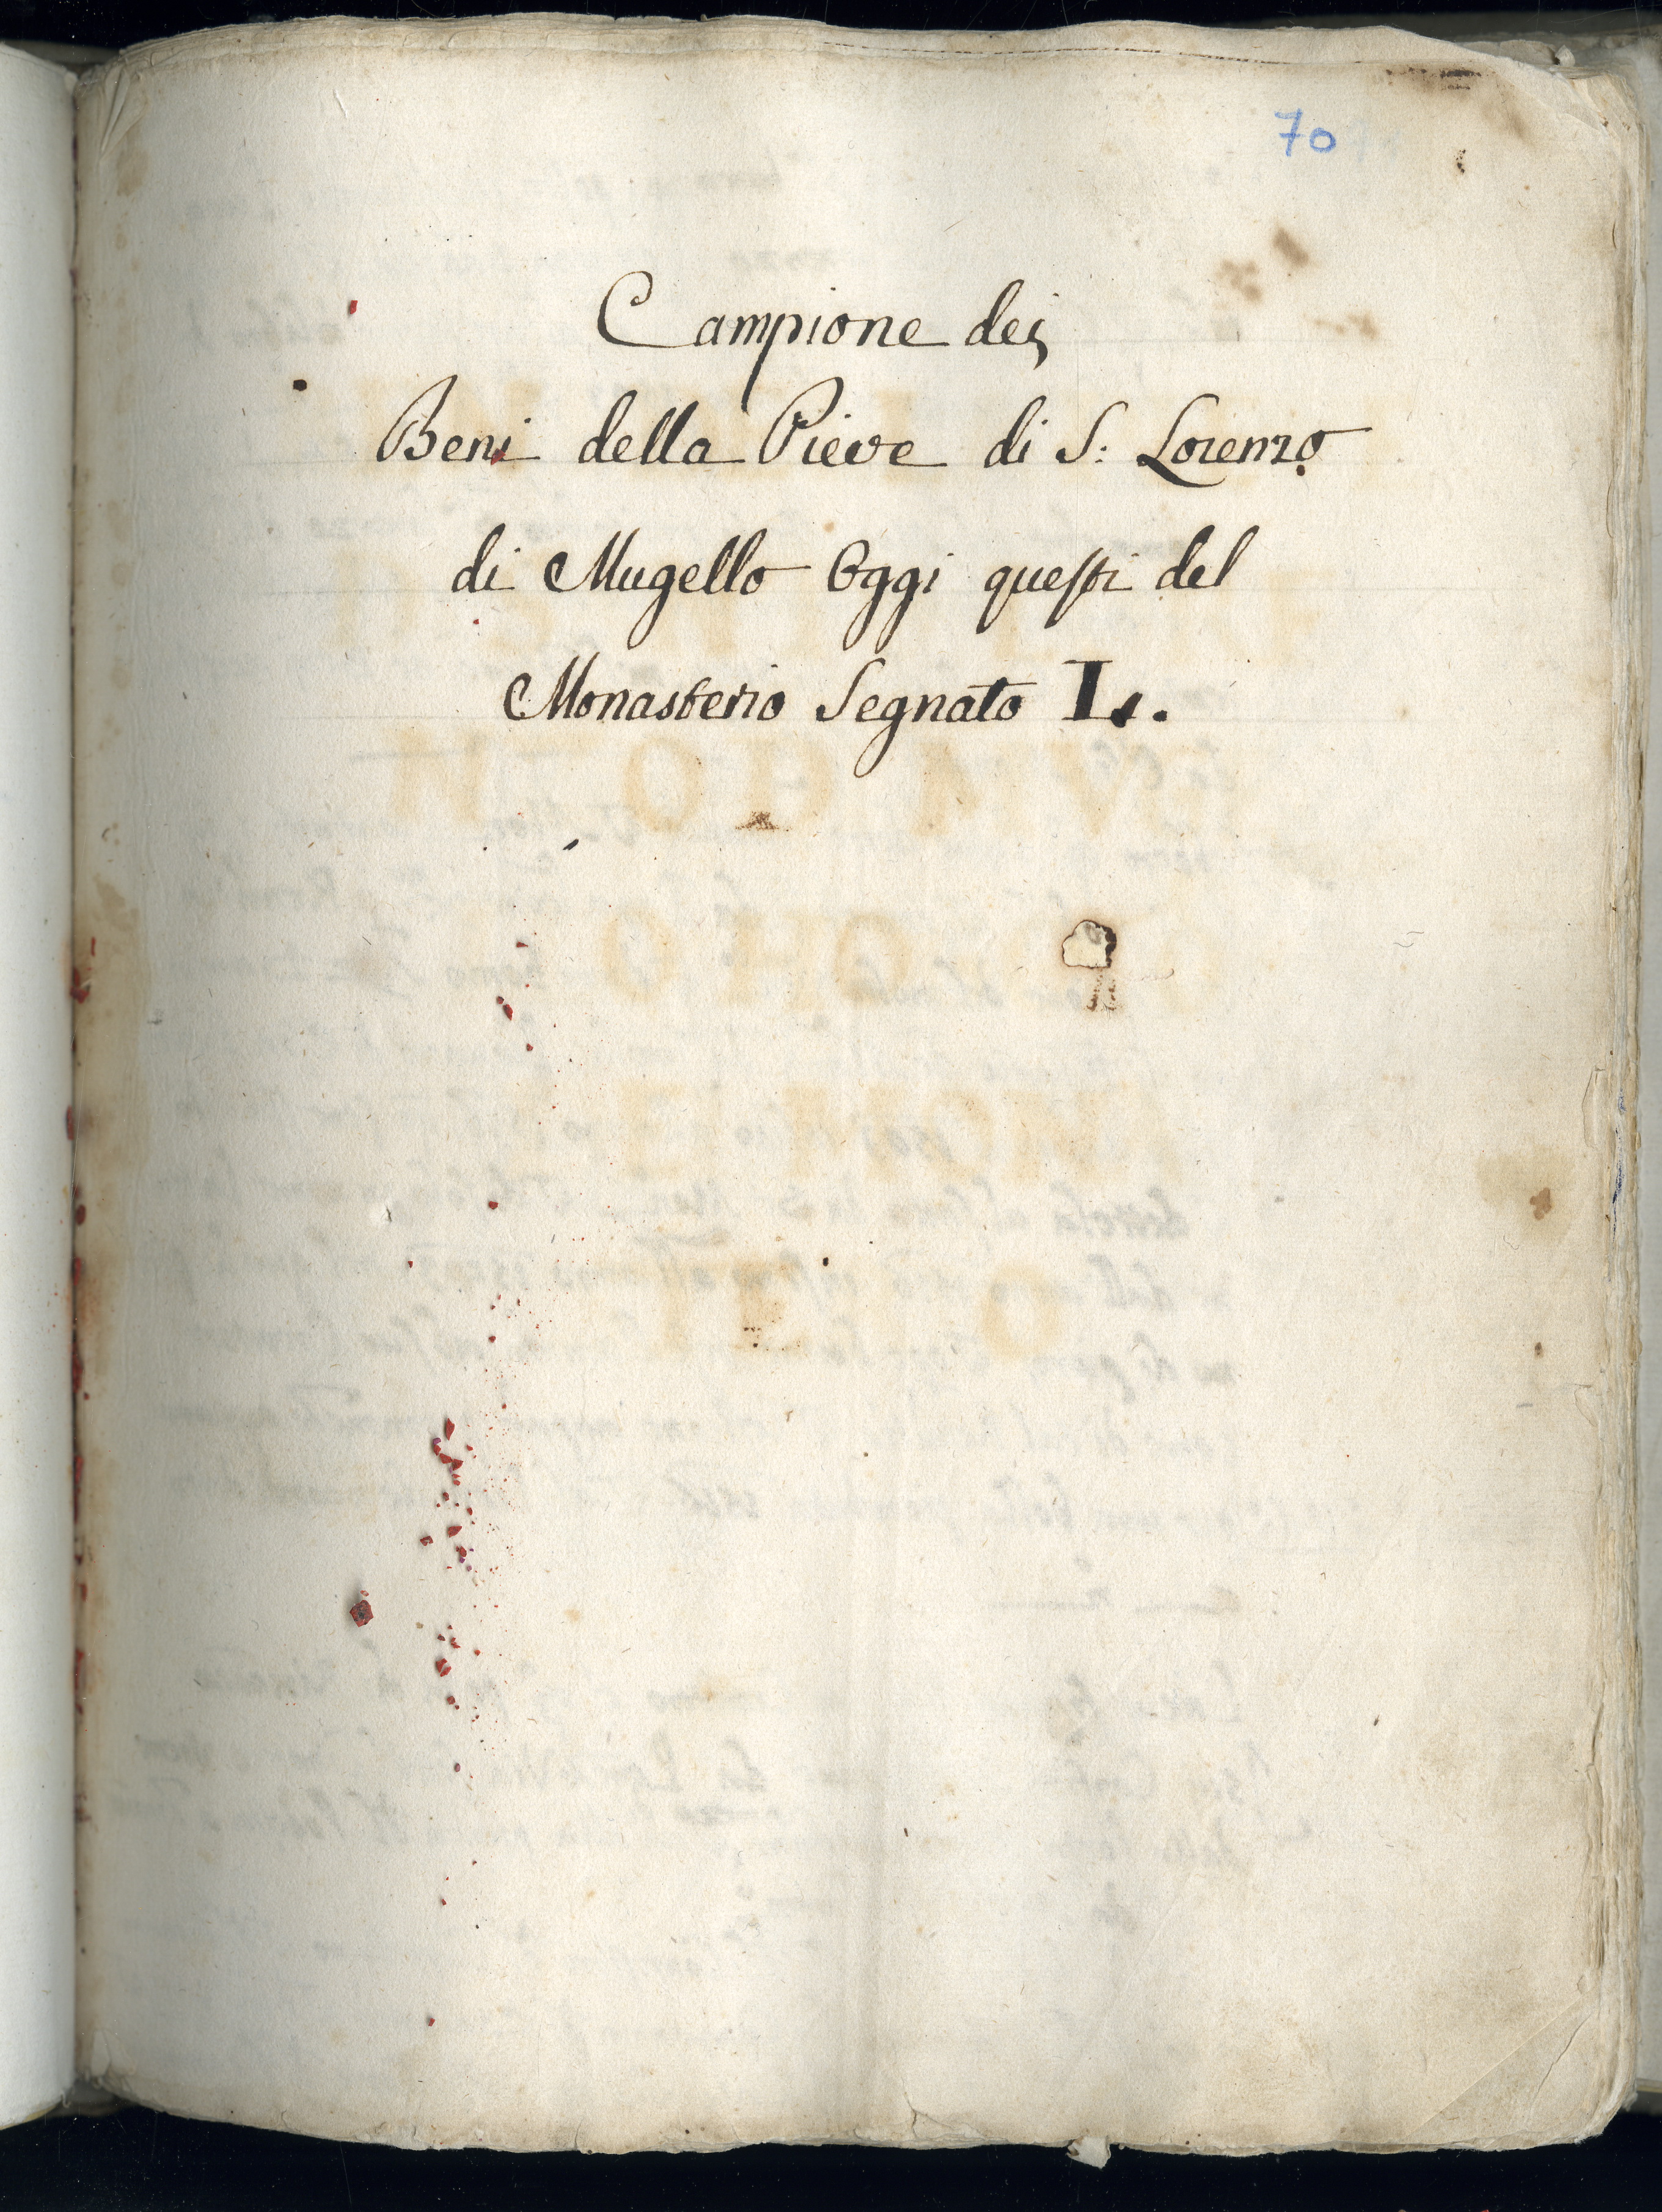 70
Campione dei
Beni della Pieve di S: Lorenzo
di Mugello Oggi questi del
Monasterio Segnato L.